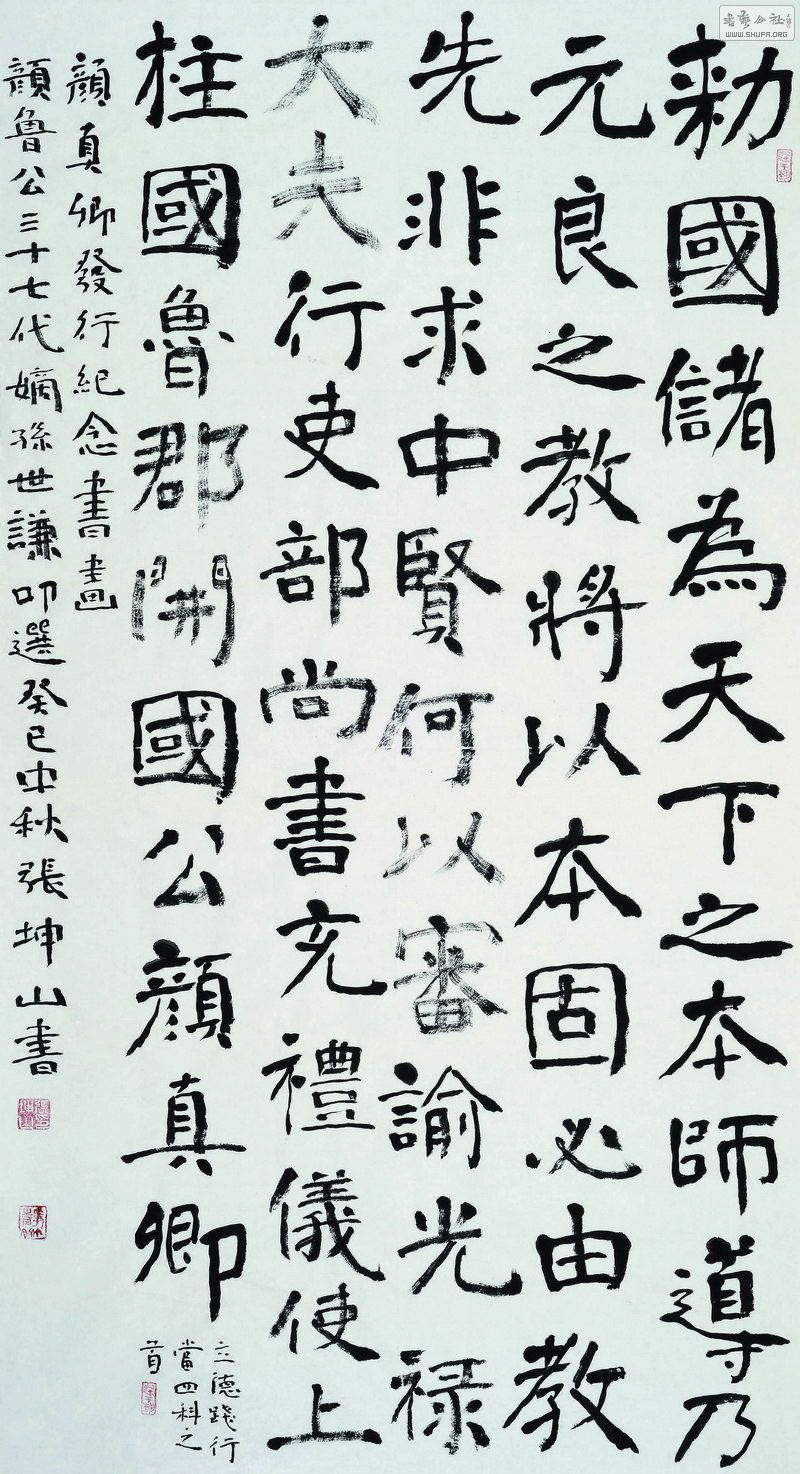 勅國儲為天下之本師導乃
元良之教將以本固必由教
先非求中賢何以審諭光禄
大夫行吏部尚書充禮儀使上
柱國魯郡開國公顔真卿
立德踐行
當四科之
首
顔真卿發行紀念書畫
顔魯公三十七代嫡孫世謙叩選癸巳中秋張坤山書
書藝公社
WWW.SHUFA.ORG